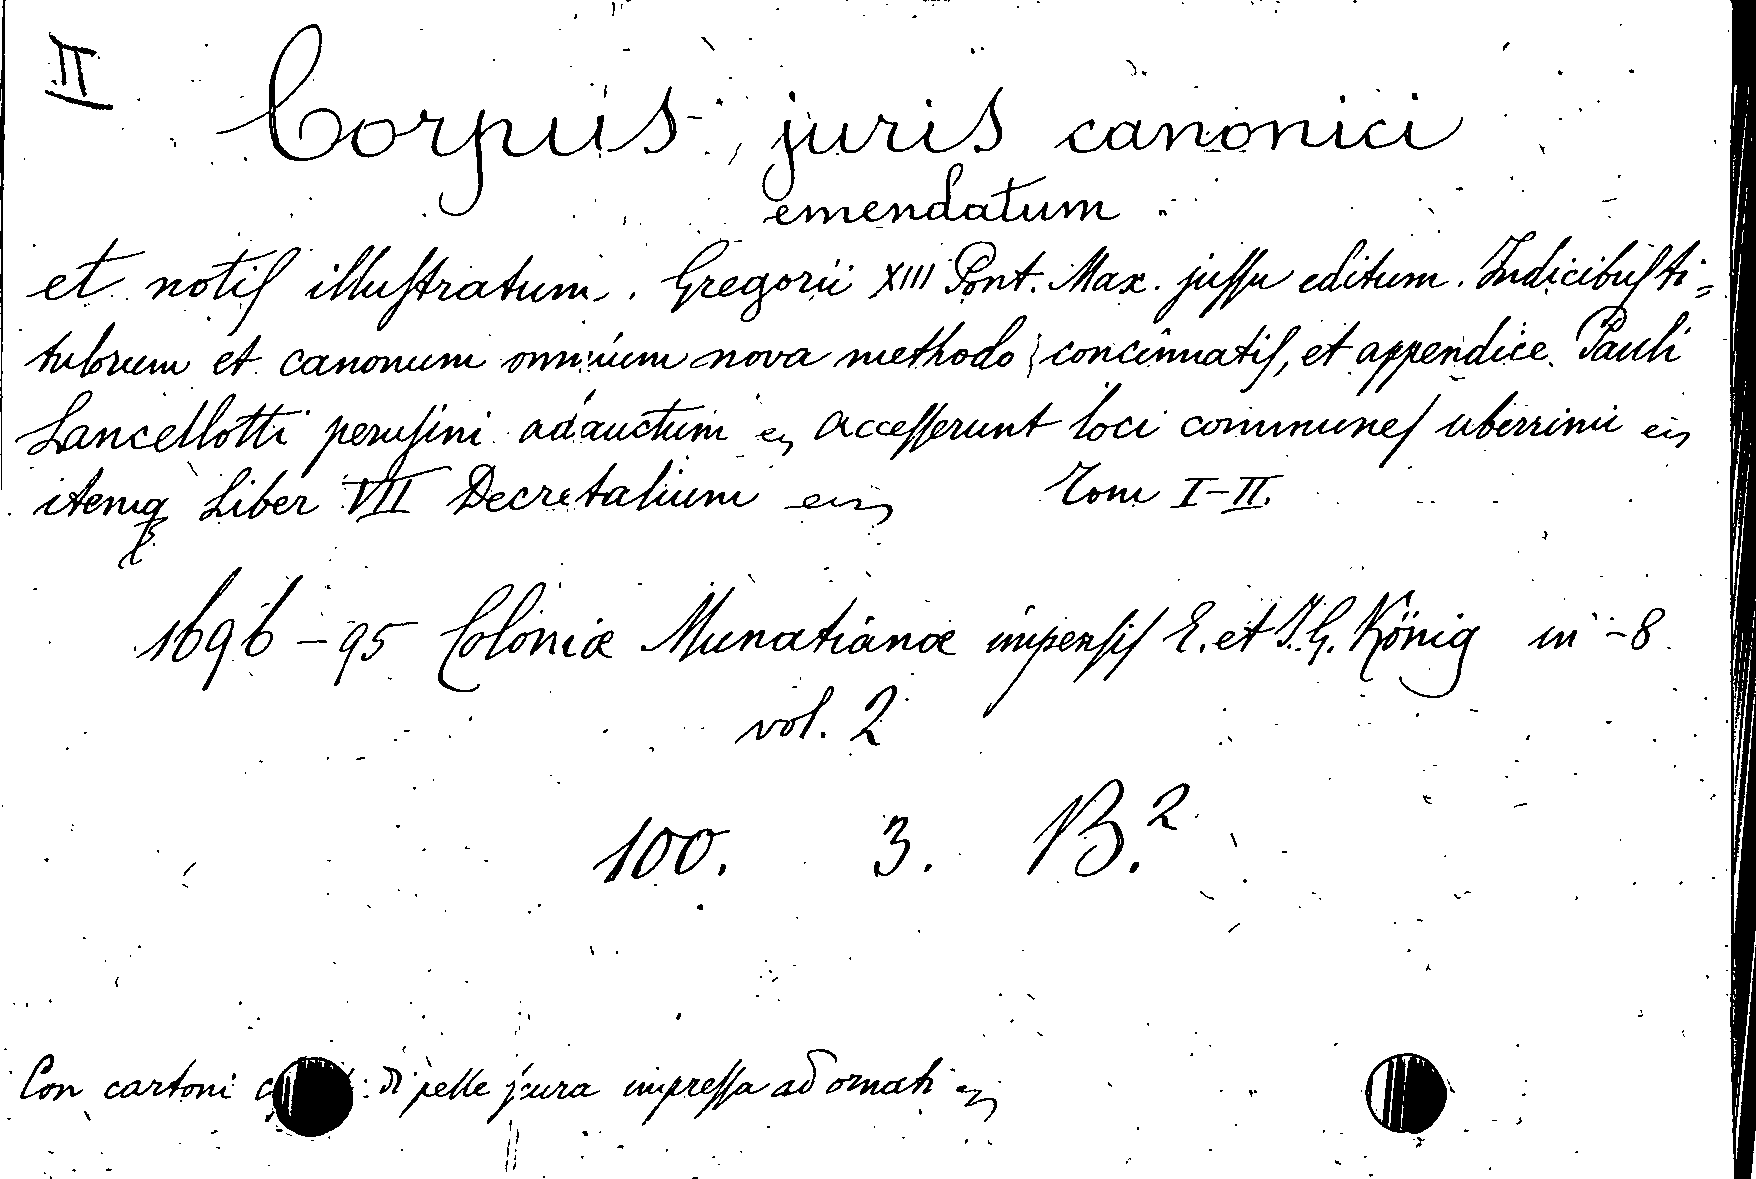 II
Corpus juris canonici
emendatum
et notiſ illuſtratum. Gregorii XIII Pont. Max. juſſu editum. Indicibuſ ti=
tulorum et canonum omnium nova methodo concinnatiſ, et appendice Pauli
Lancellotti peruſini adauctum acceſſerunt loci communeſ uberrimi
itemq Liber VII Decretalium Tom I-II.
1696-95 Coloniæ Munatianæ impenſiſ E. et J. G. König in-8
vol. 2
100. 3. B.²
Con cartoni di pelle impreſſa ad ornati